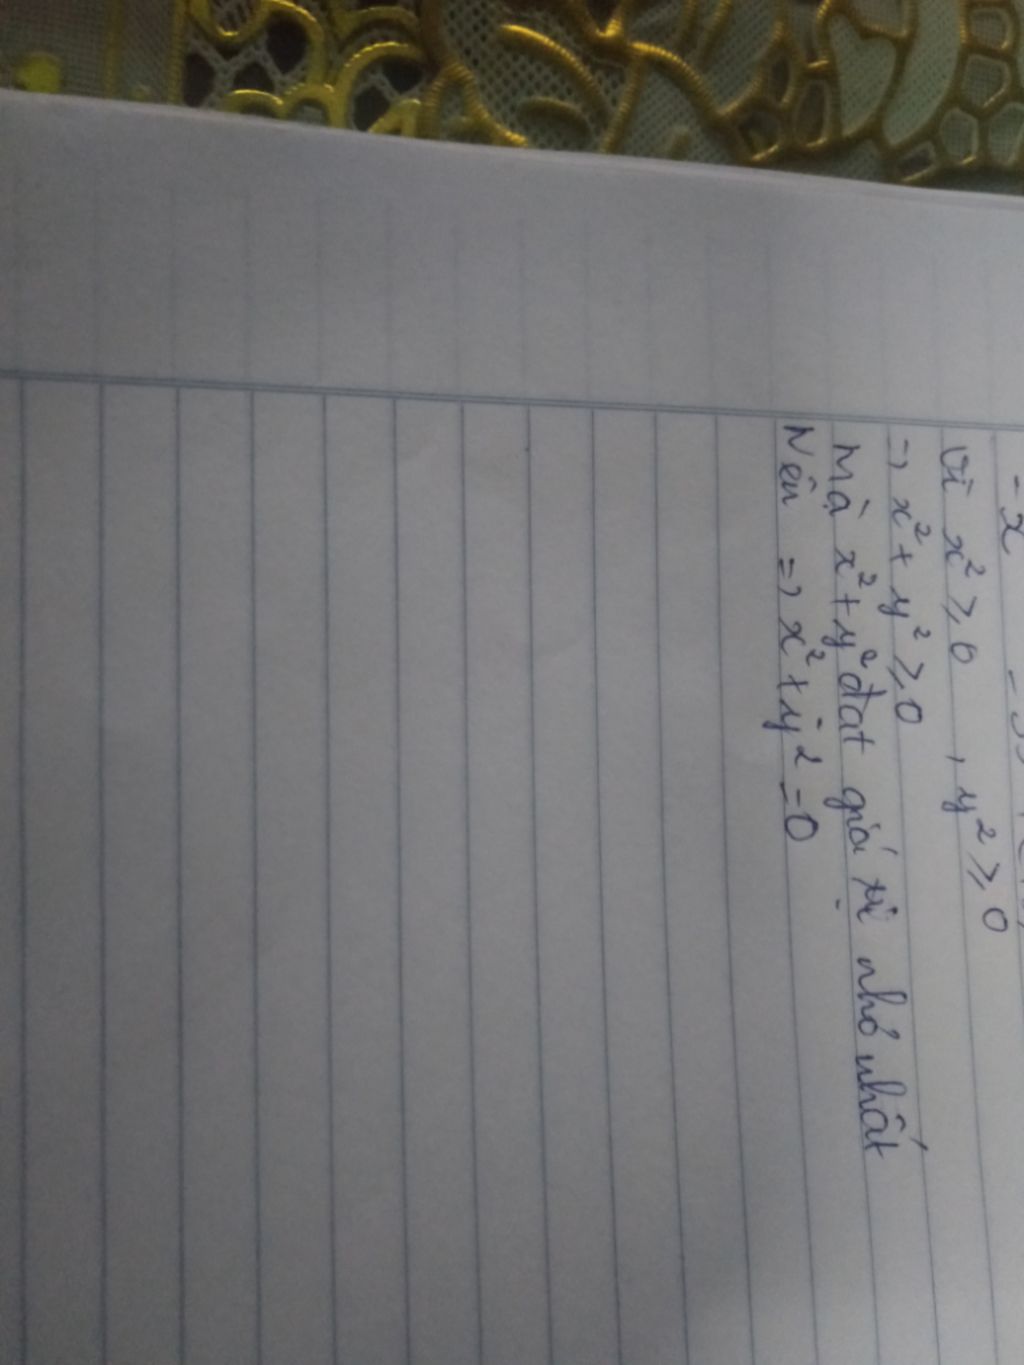 - x
Vì x² ≥ 0 , y² ≥ 0
=> x² + y² ≥ 0
Mà x² + y² đạt giá trị nhỏ nhất
Nên => x² + y² = 0